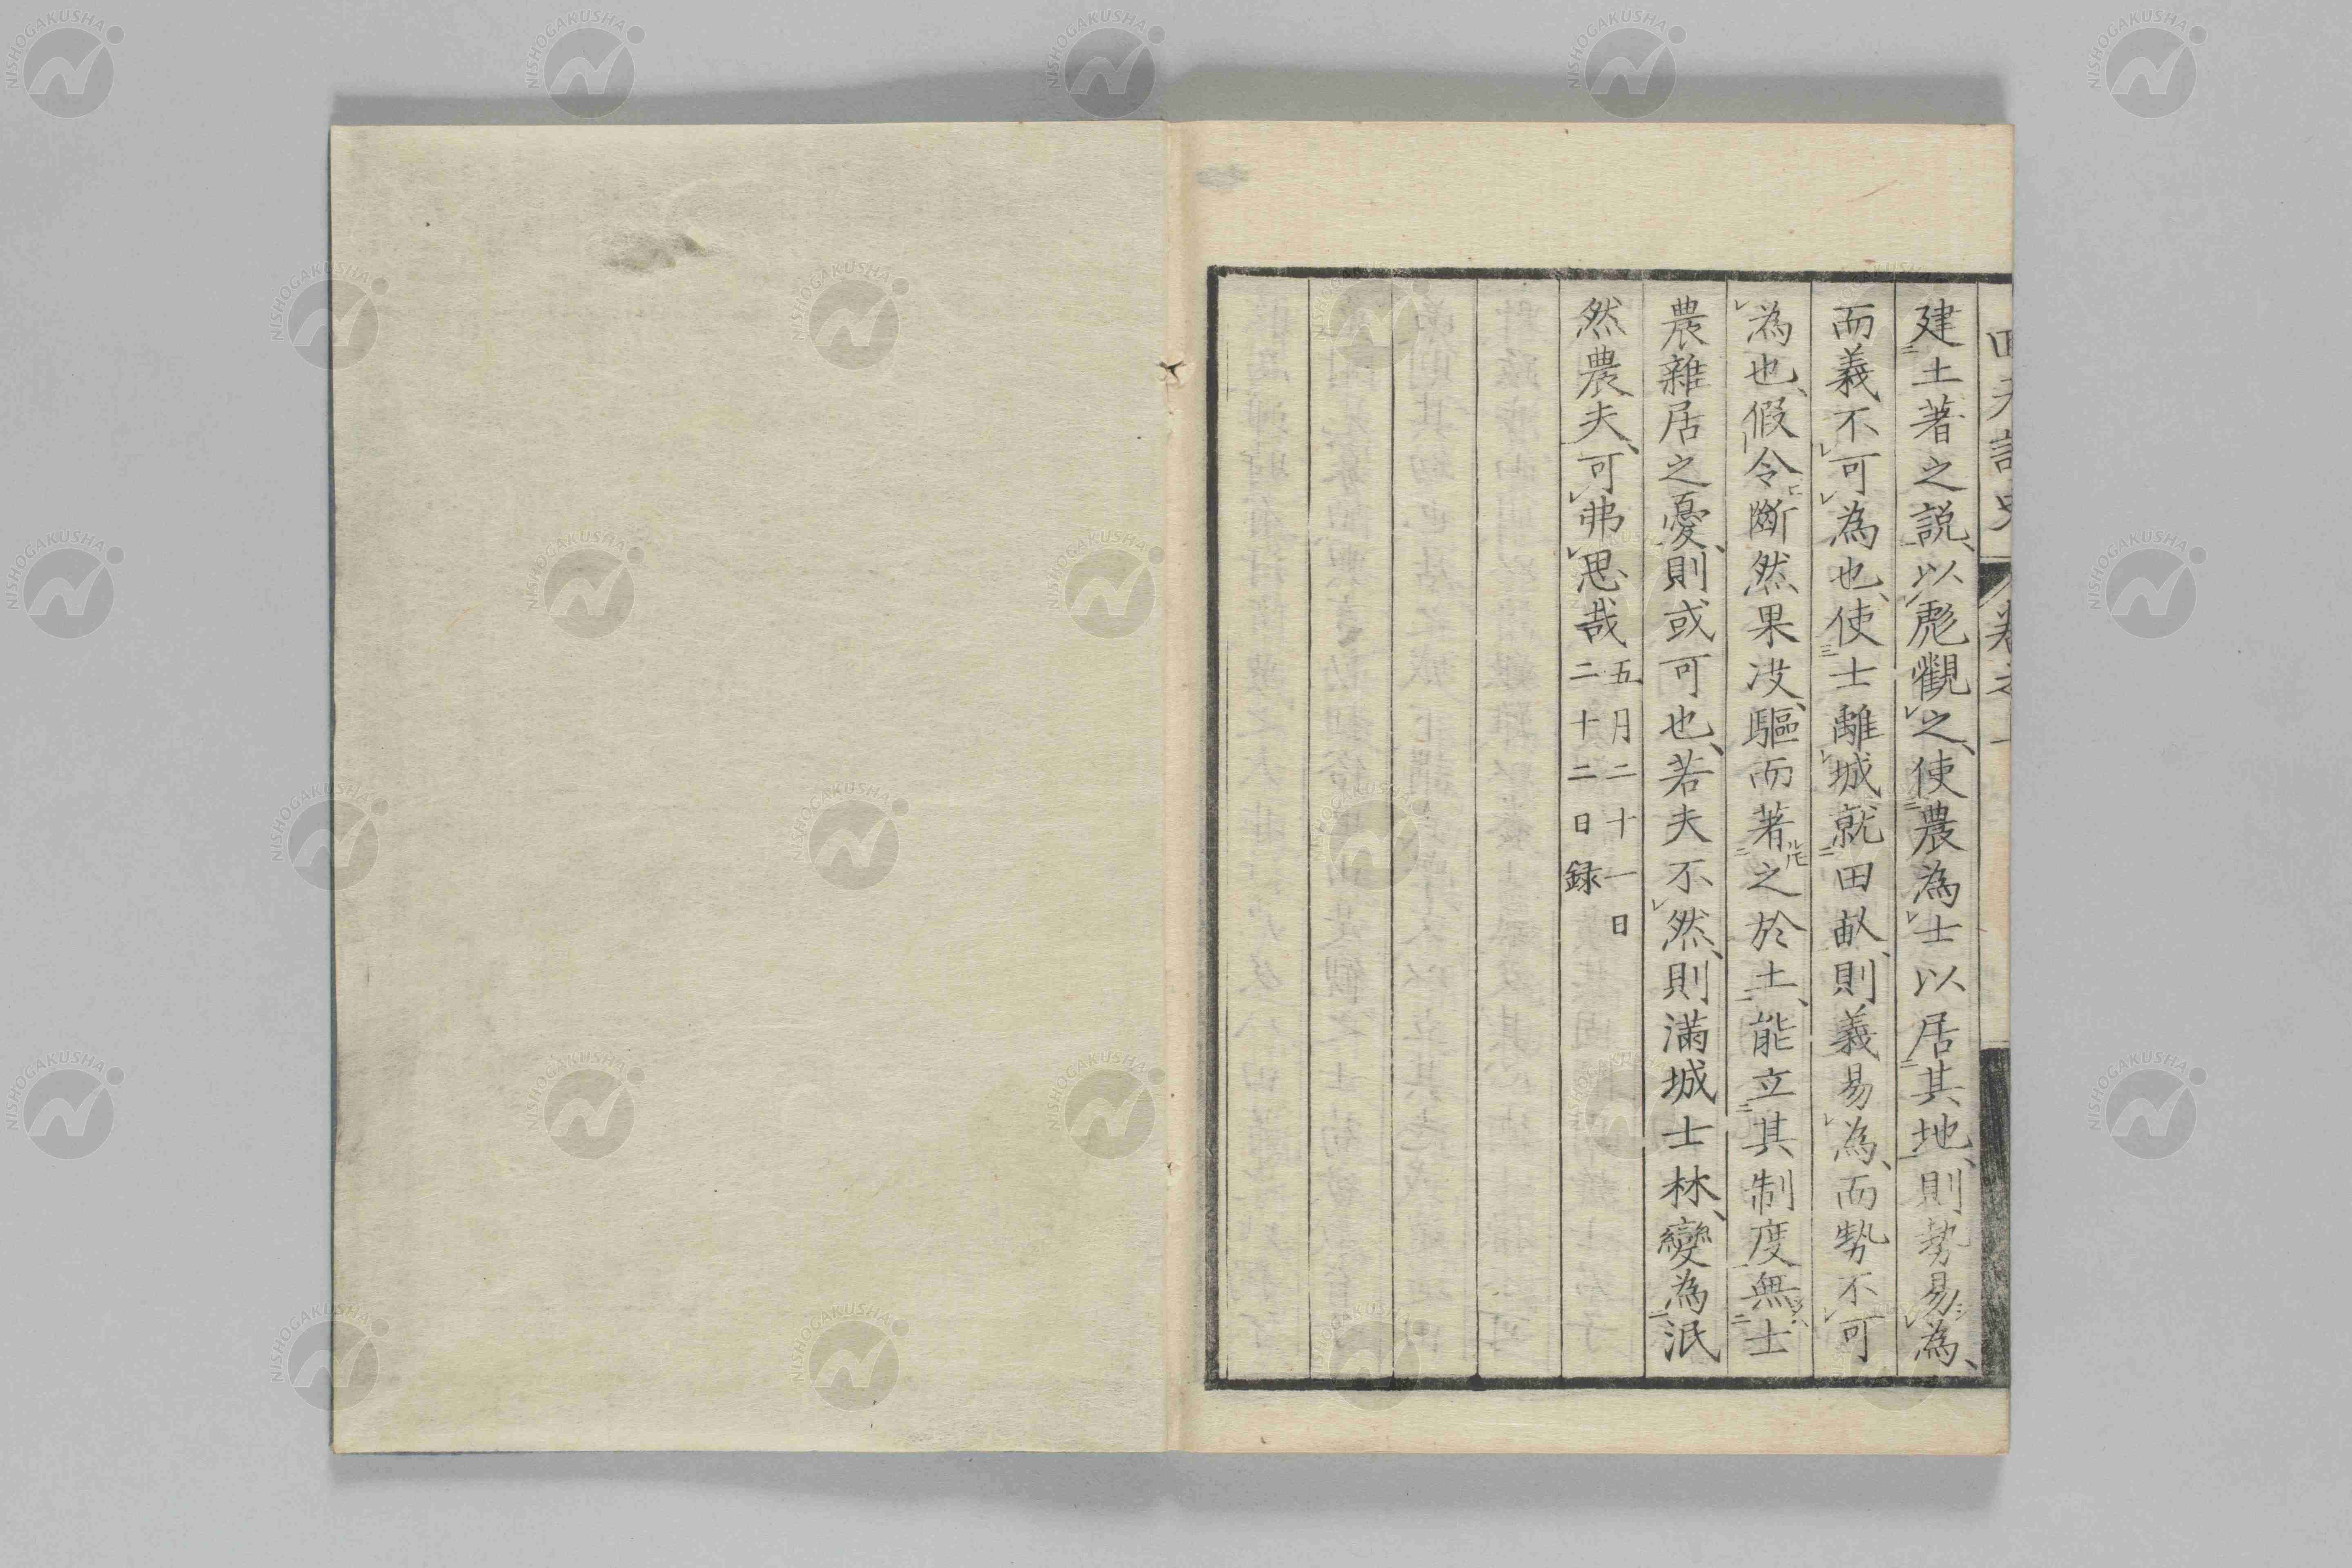 建土著之説以彪觀之使農為士以居其地則勢易為
而義不可為也使士離城就田畝則義易為而勢不可
為也假令斷然果决驅而著之於土能立其制度無士
農雜居之憂則或可也若夫不然則滿城士林變為泯
然農夫可弗思哉
五月二十一日
二十二日録
NISHOGAKUSHA